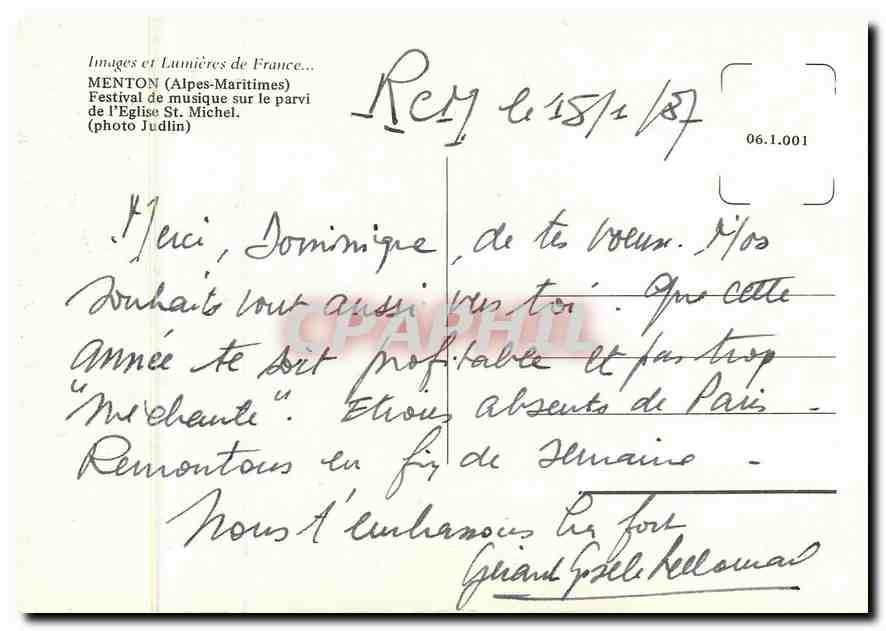 Images et Lumières de France...
MENTON (Alpes-Maritimes)
Festival de musique sur le parvi
de l'Eglise St. Michel.
(photo Judlin)
RCM le 18/1/87
06.1.001
Merci, Dominique, de tes voeux. Nos
souhaits vont aussi vers toi. Que cette
année te soit profitable et pas trop
"méchante". Etions absents de Paris -
Remontons en fin de semaine -
Nous t'embrassons très fort
Gérard Gisèle
CPAPHIL